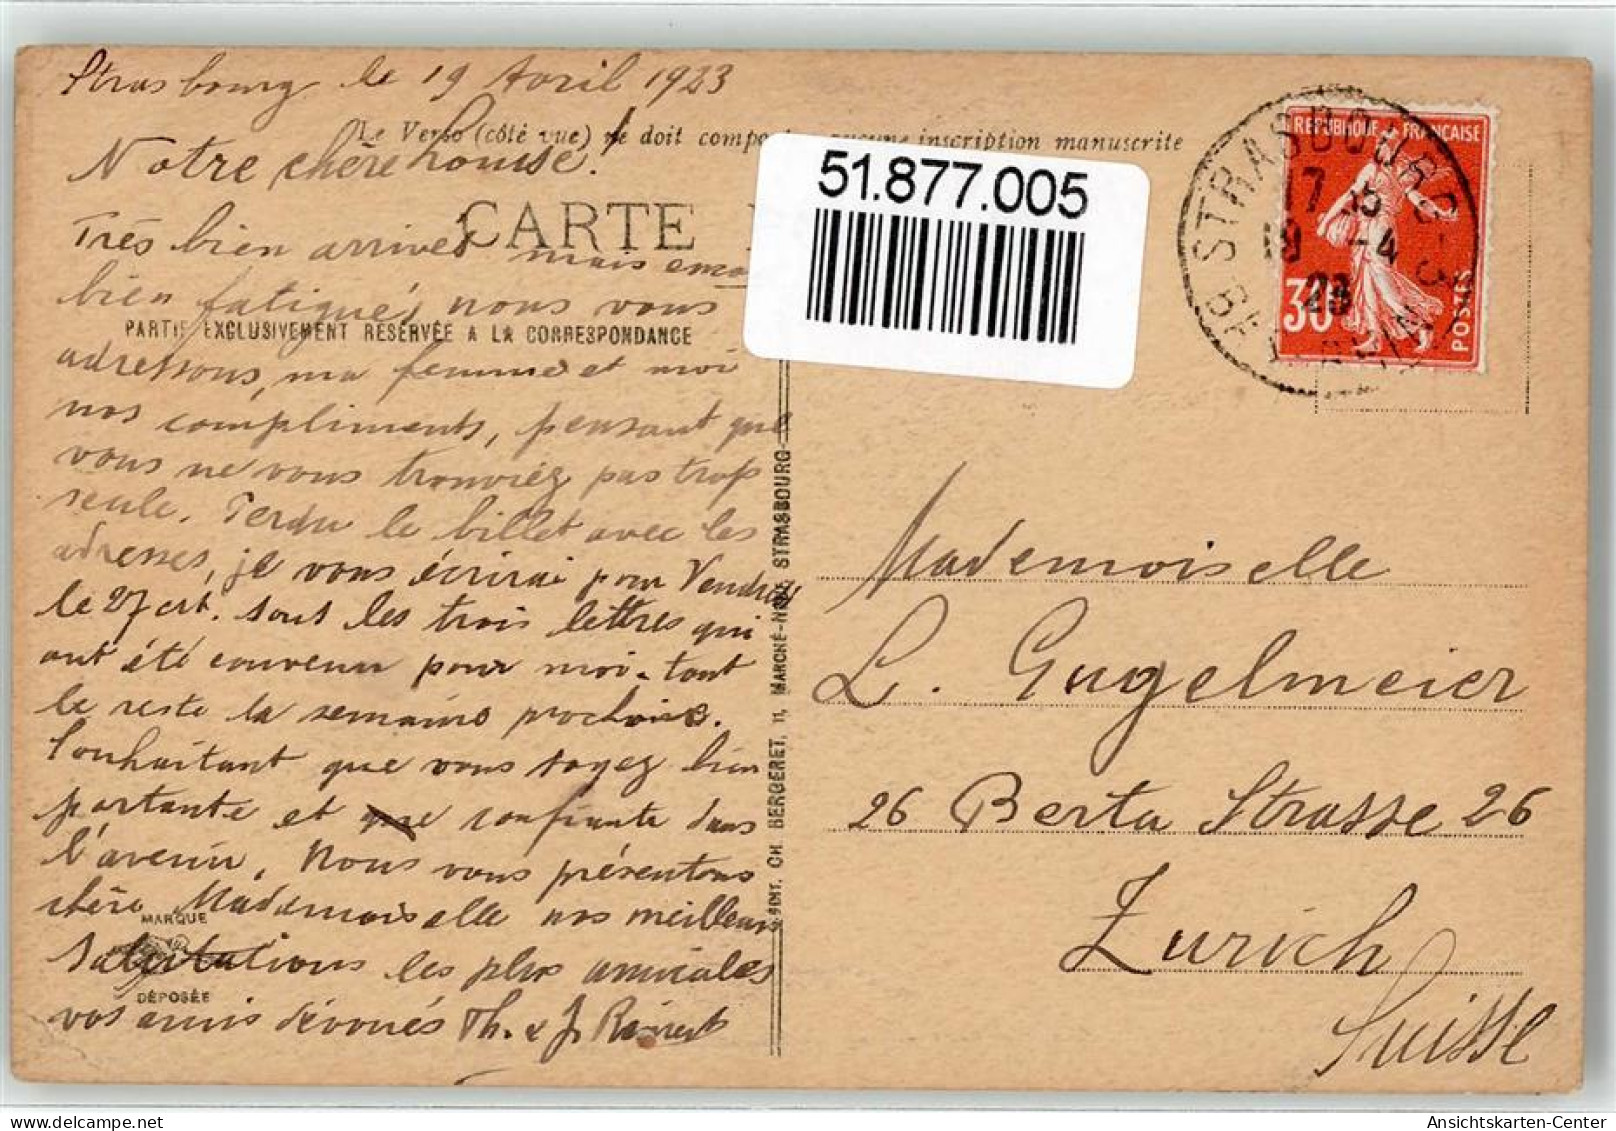 Strasbourg le 19 Avril 1923
Le Verso (côté vue) ne doit aucune inscription manuscrite
Notre chère Louise!
CARTE
Très bien arrivés mais
bien fatigués, nous vous
PARTIE EXCLUSIVEMENT RÉSERVÉE A LA CORRESPONDANCE
adressons, ma femme et moi
nos compliments, pensant que
vous ne vous trouviez pas trop
seule. Perdu le billet avec les
adresses, je vous écrirai pour Vendredi
le 27 crt. sous les trois lettres qui
ont été convenu pour moi. tout
le reste la semaine prochaine.
Souhaitant que vous soyez bien
portante et confiante dans
l'avenir. Nous vous présentons
chère Mademoiselle nos meilleurs
salutations les plus amicales
vos amis dévoués Th. & J.
MARQUE
DÉPOSÉE
CH. BERGERET, 11, MARCHÉ-NEUF STRASBOURG
51.877.005
REPUBLIQUE FRANÇAISE
30
POSTES
STRASBOURG
17 15
19 -4
23
Mademoiselle
L. Gugelmeier
26 Berta Strasse 26
Zurich
Suisse
Ansichtskarten-Center